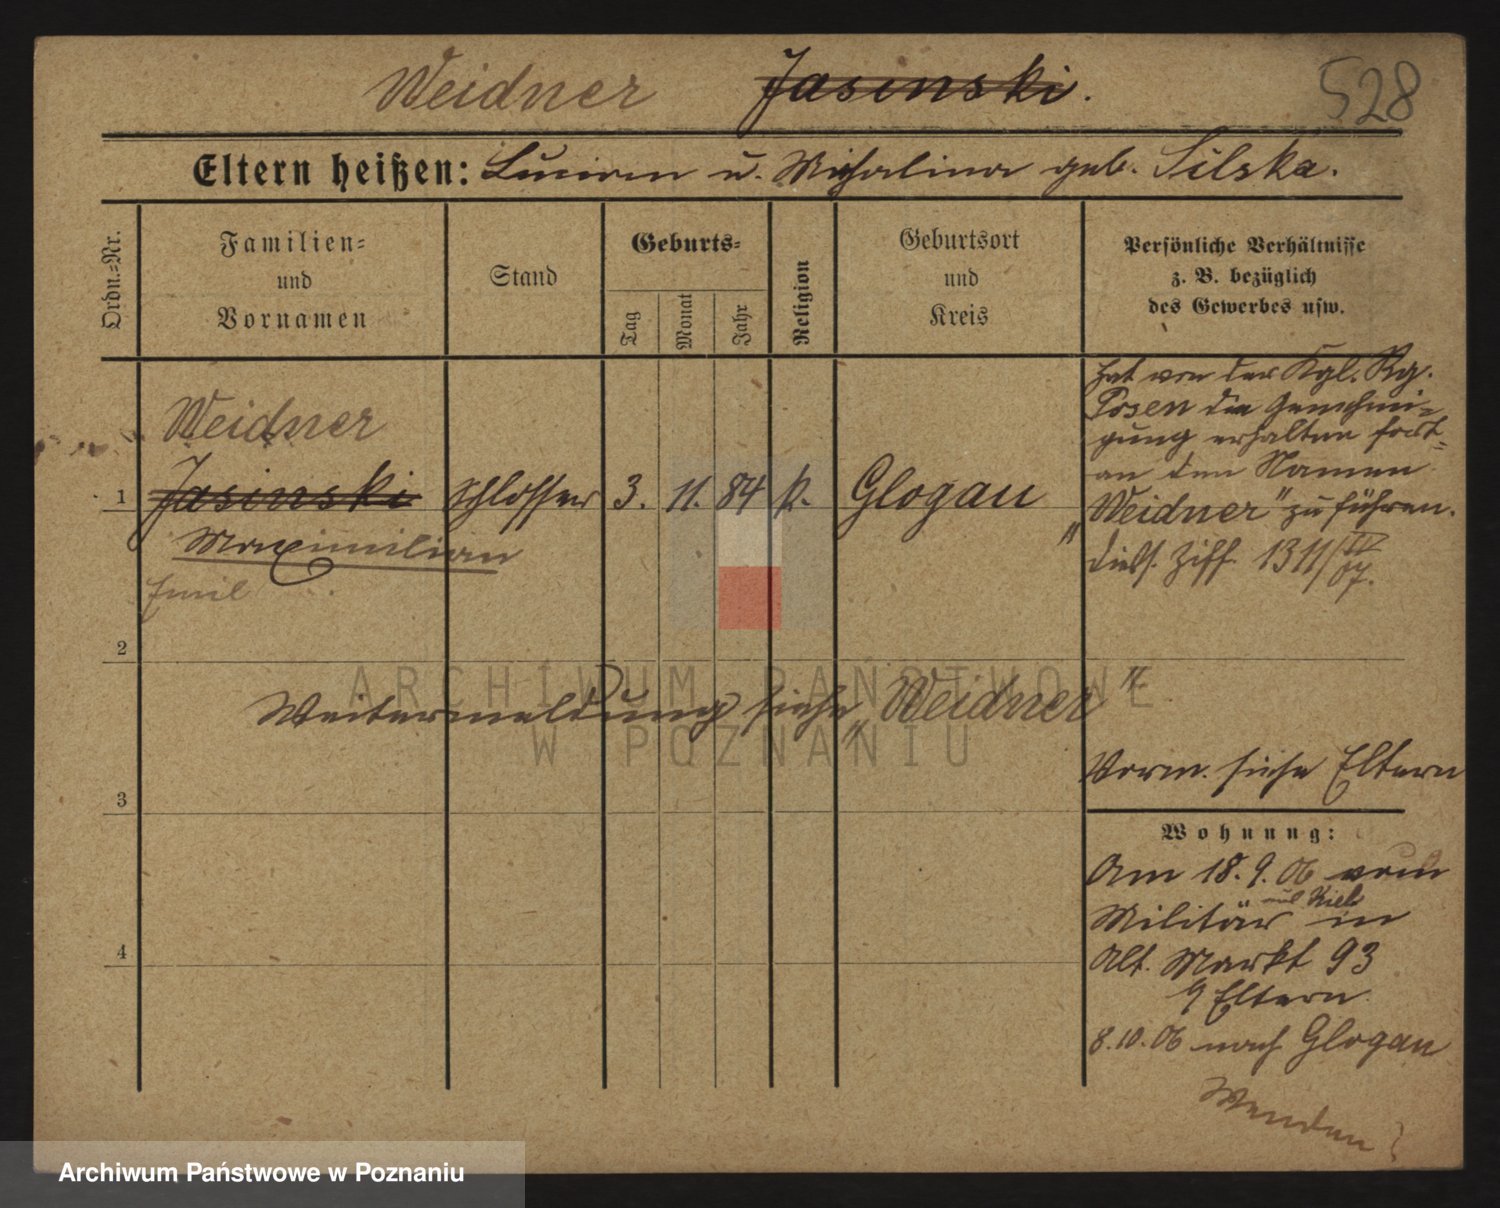 Weidner Jasinski.
528
Eltern heißen: Lucian u. Michalina geb. Silska.
Ordn.=Nr.
Familien=
und
Vornamen
Stand
Geburts=
Tag
Monat
Jahr
Religion
Geburtsort
und
Kreis
Persönliche Verhältnisse
z. B. bezüglich
des Gewerbes usw.
Weidner
1 Jasinski Schlosser 3. 11. 84 k. Glogau
Maximilian
Emil
hat von der Kgl. Rg.
Posen die Genehmi=
gung erhalten fort=
an den Namen
„Weidner" zu führen.
diess. Ziff. 1311/IV
07.
2
Weitermeldung siehe „Weidner"
Vorm. siehe Eltern
3
Wohnung:
Am 18.9.06 vom
Militär aus Kiel in
Alt. Markt 93
Eltern
4
8.10.06 nach Glogau
Wenden
ARCHIWUM PAŃSTWOWE
W POZNANIU
Archiwum Państwowe w Poznaniu